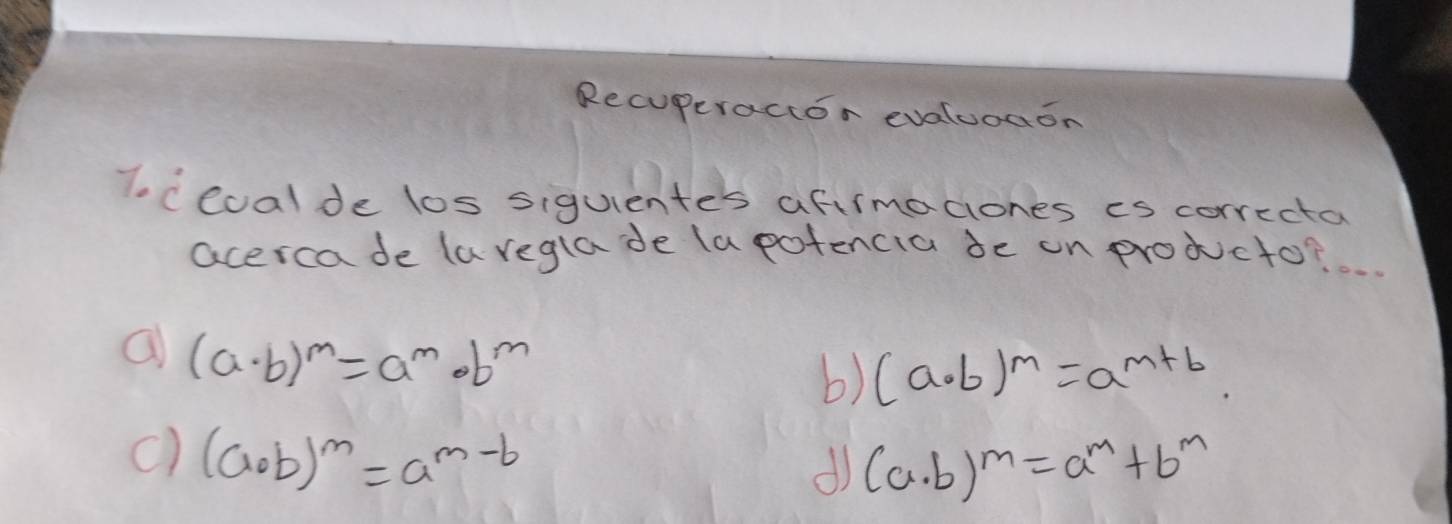 Recuperación evaluación
1. ¿cual de los siguientes afirmaciones es correcta
acerca de la regla de la potencia de un producto?....
a) (a·b)ᵐ = aᵐ · bᵐ
b) (a·b)ᵐ = aᵐ⁺ᵇ.
c) (a·b)ᵐ = aᵐ⁻ᵇ
d) (a·b)ᵐ = aᵐ + bᵐ